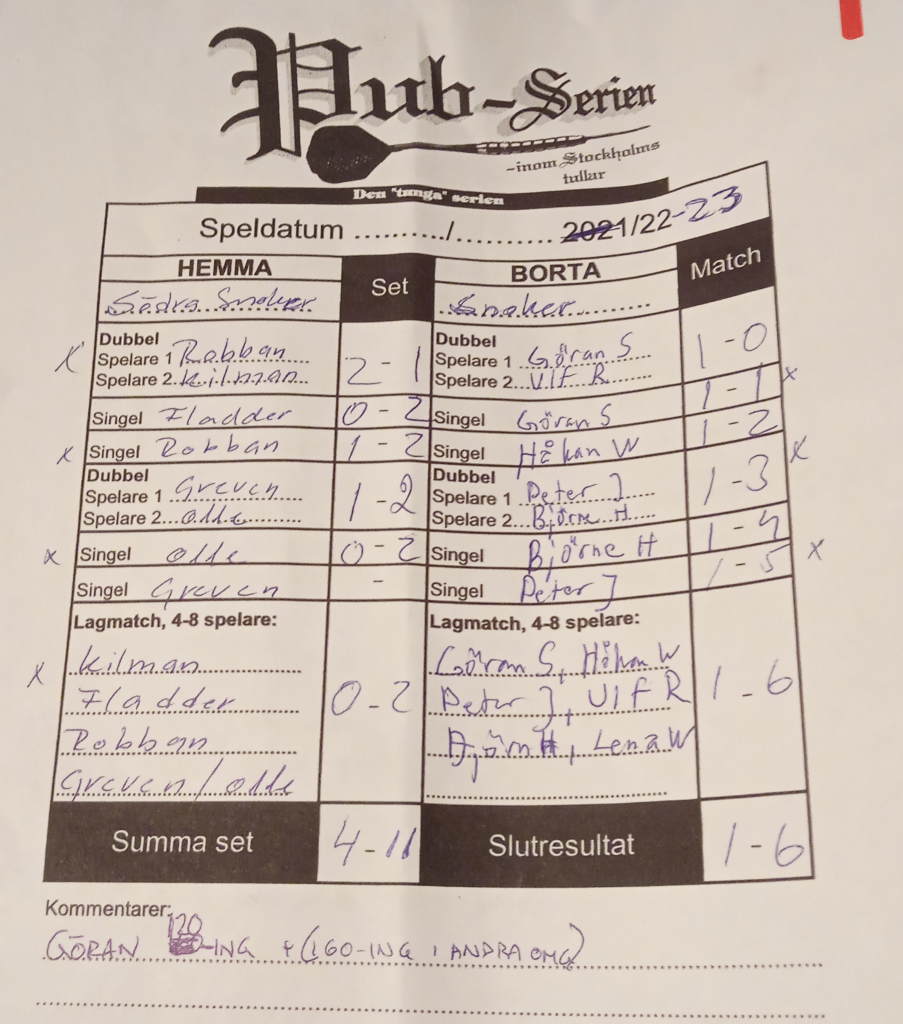 Pub-Serien
-inom Stockholms
tullar
Den "tunga" serien
Speldatum ........../.......... 2021/22-23
HEMMA Set BORTA Match
Södra Snoker Snoker
Dubbel Dubbel
X Spelare 1 Robban 2 - 1 Spelare 1 Göran S 1 - 0
Spelare 2 Kilman Spelare 2 Ulf R
Singel Fladder 0 - 2 Singel Göran S 1 - 1 x
x Singel Robban 1 - 2 Singel Håkan W 1 - 2
Dubbel Dubbel x
Spelare 1 Greven 1 - 2 Spelare 1 Peter J 1 - 3
Spelare 2 Olle Spelare 2 Björne H
x Singel Olle 0 - 2 Singel Björne H 1 - 4
Singel Greven - Singel Peter J 1 - 5 x
Lagmatch, 4-8 spelare: Lagmatch, 4-8 spelare:
x Kilman Göran S, Håkan W
Fladder 0 - 2 Peter J, Ulf R 1 - 6
Robban Björn H, Lena W
Greven / Olle
Summa set 4 - 11 Slutresultat 1 - 6
Kommentarer:
GÖRAN 120-ING + (160-ING I ANDRA OMG)